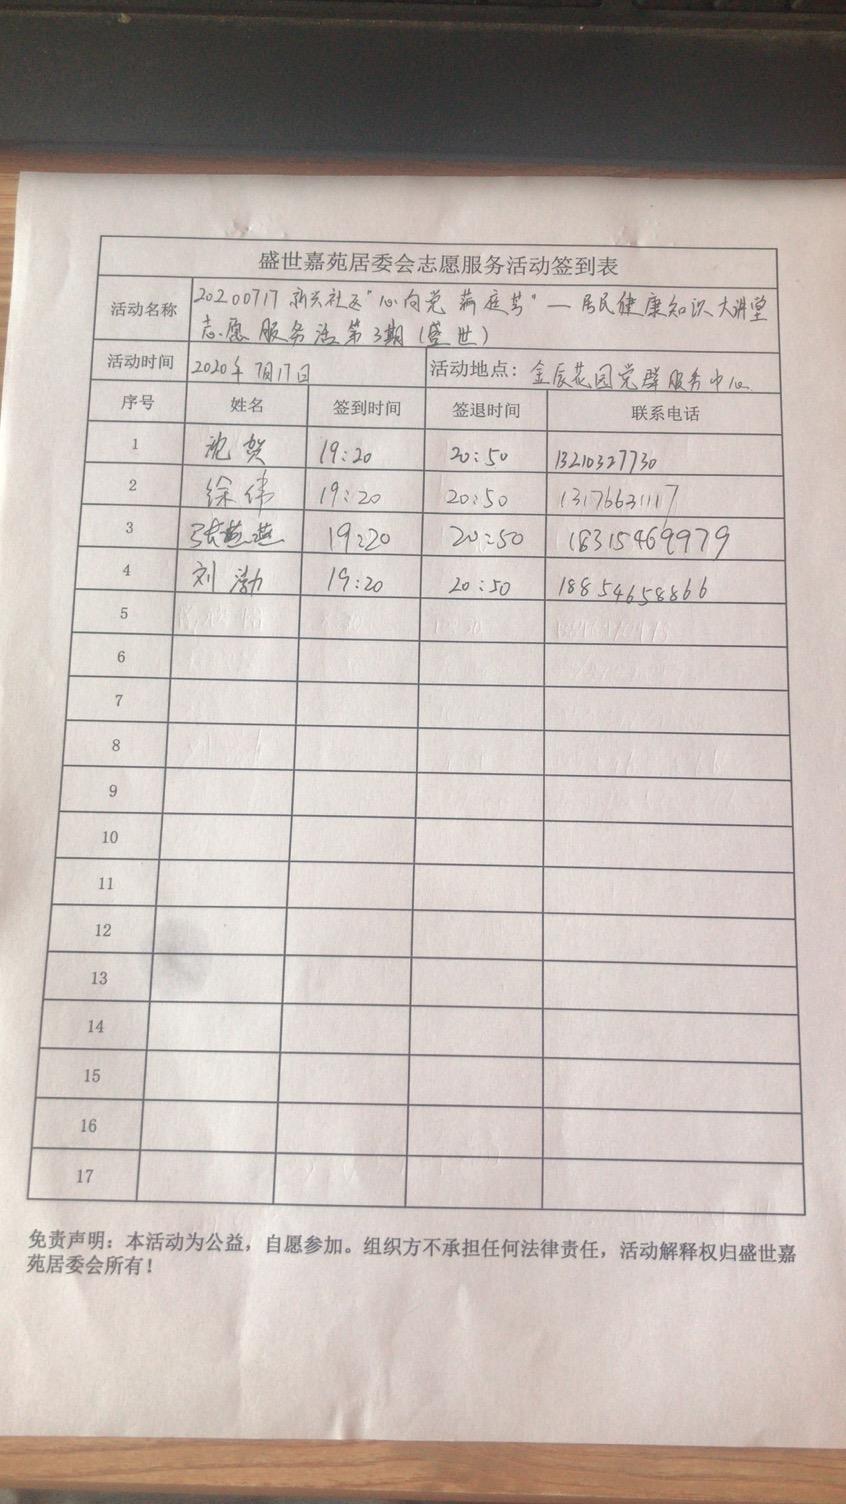 盛世嘉苑居委会志愿服务活动签到表
活动名称 20200717 新兴社区"心向党 满庭芳"—居民健康知识大讲堂
志愿服务活第3期(盛世)
活动时间 2020年7月17日 活动地点: 金辰花园党群服务中心
序号 姓名 签到时间 签退时间 联系电话
1 贺 19:20 20:50 13210327730
2 徐伟 19:20 20:50 13176631117
3 张燕燕 19:20 20:50 18315469979
4 刘渤 19:20 20:50 18854658866
5
6
7
8
9
10
11
12
13
14
15
16
17
免责声明：本活动为公益，自愿参加。组织方不承担任何法律责任，活动解释权归盛世嘉
苑居委会所有！